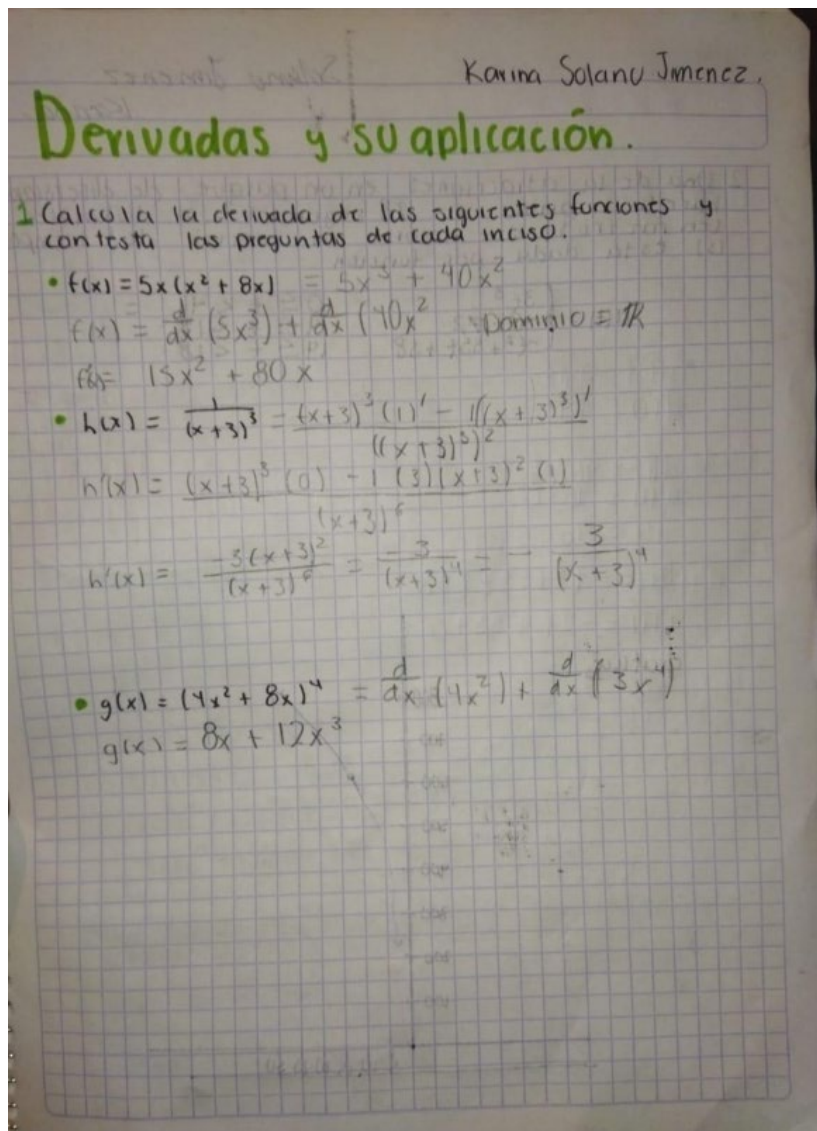 Karina Solano Jimenez.
Derivadas y su aplicación.
1 Calcula la derivada de las siguientes funciones y
contesta las preguntas de cada inciso.
• f(x) = 5x(x² + 8x) = 5x³ + 40x²
f(x) = d/dx (5x³) + d/dx (40x² Dominio = ℝ
f'(x) = 15x² + 80x
• h(x) = 1/(x+3)³ = (x+3)³(1)' - 1((x+3)³)' / ((x+3)³)²
h'(x) = (x+3)³(0) - 1(3)(x+3)²(1) / (x+3)⁶
h'(x) = -3(x+3)²/(x+3)⁶ = -3/(x+3)⁴ = - 3/(x+3)⁴
• g(x) = (4x² + 8x)⁴ = d/dx (4x²) + d/dx (3x⁴)
g(x) = 8x + 12x³